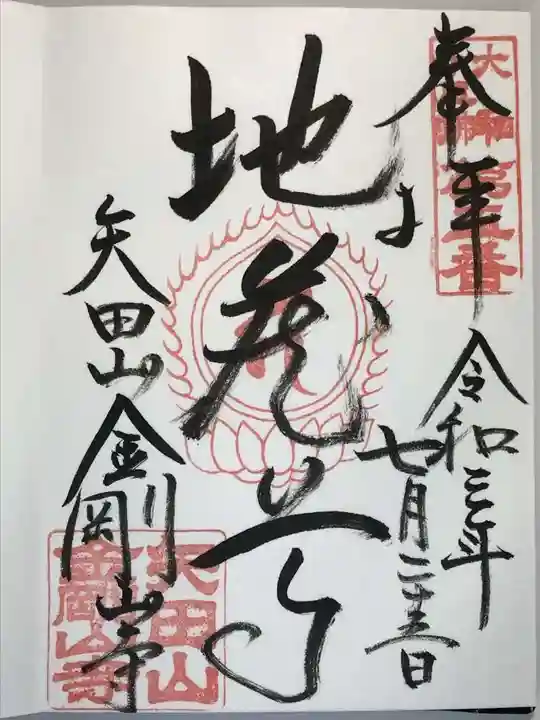 奉拝
令和三年
七月二十三日
地蔵尊
矢田山
金剛山寺
矢田山
金剛山寺